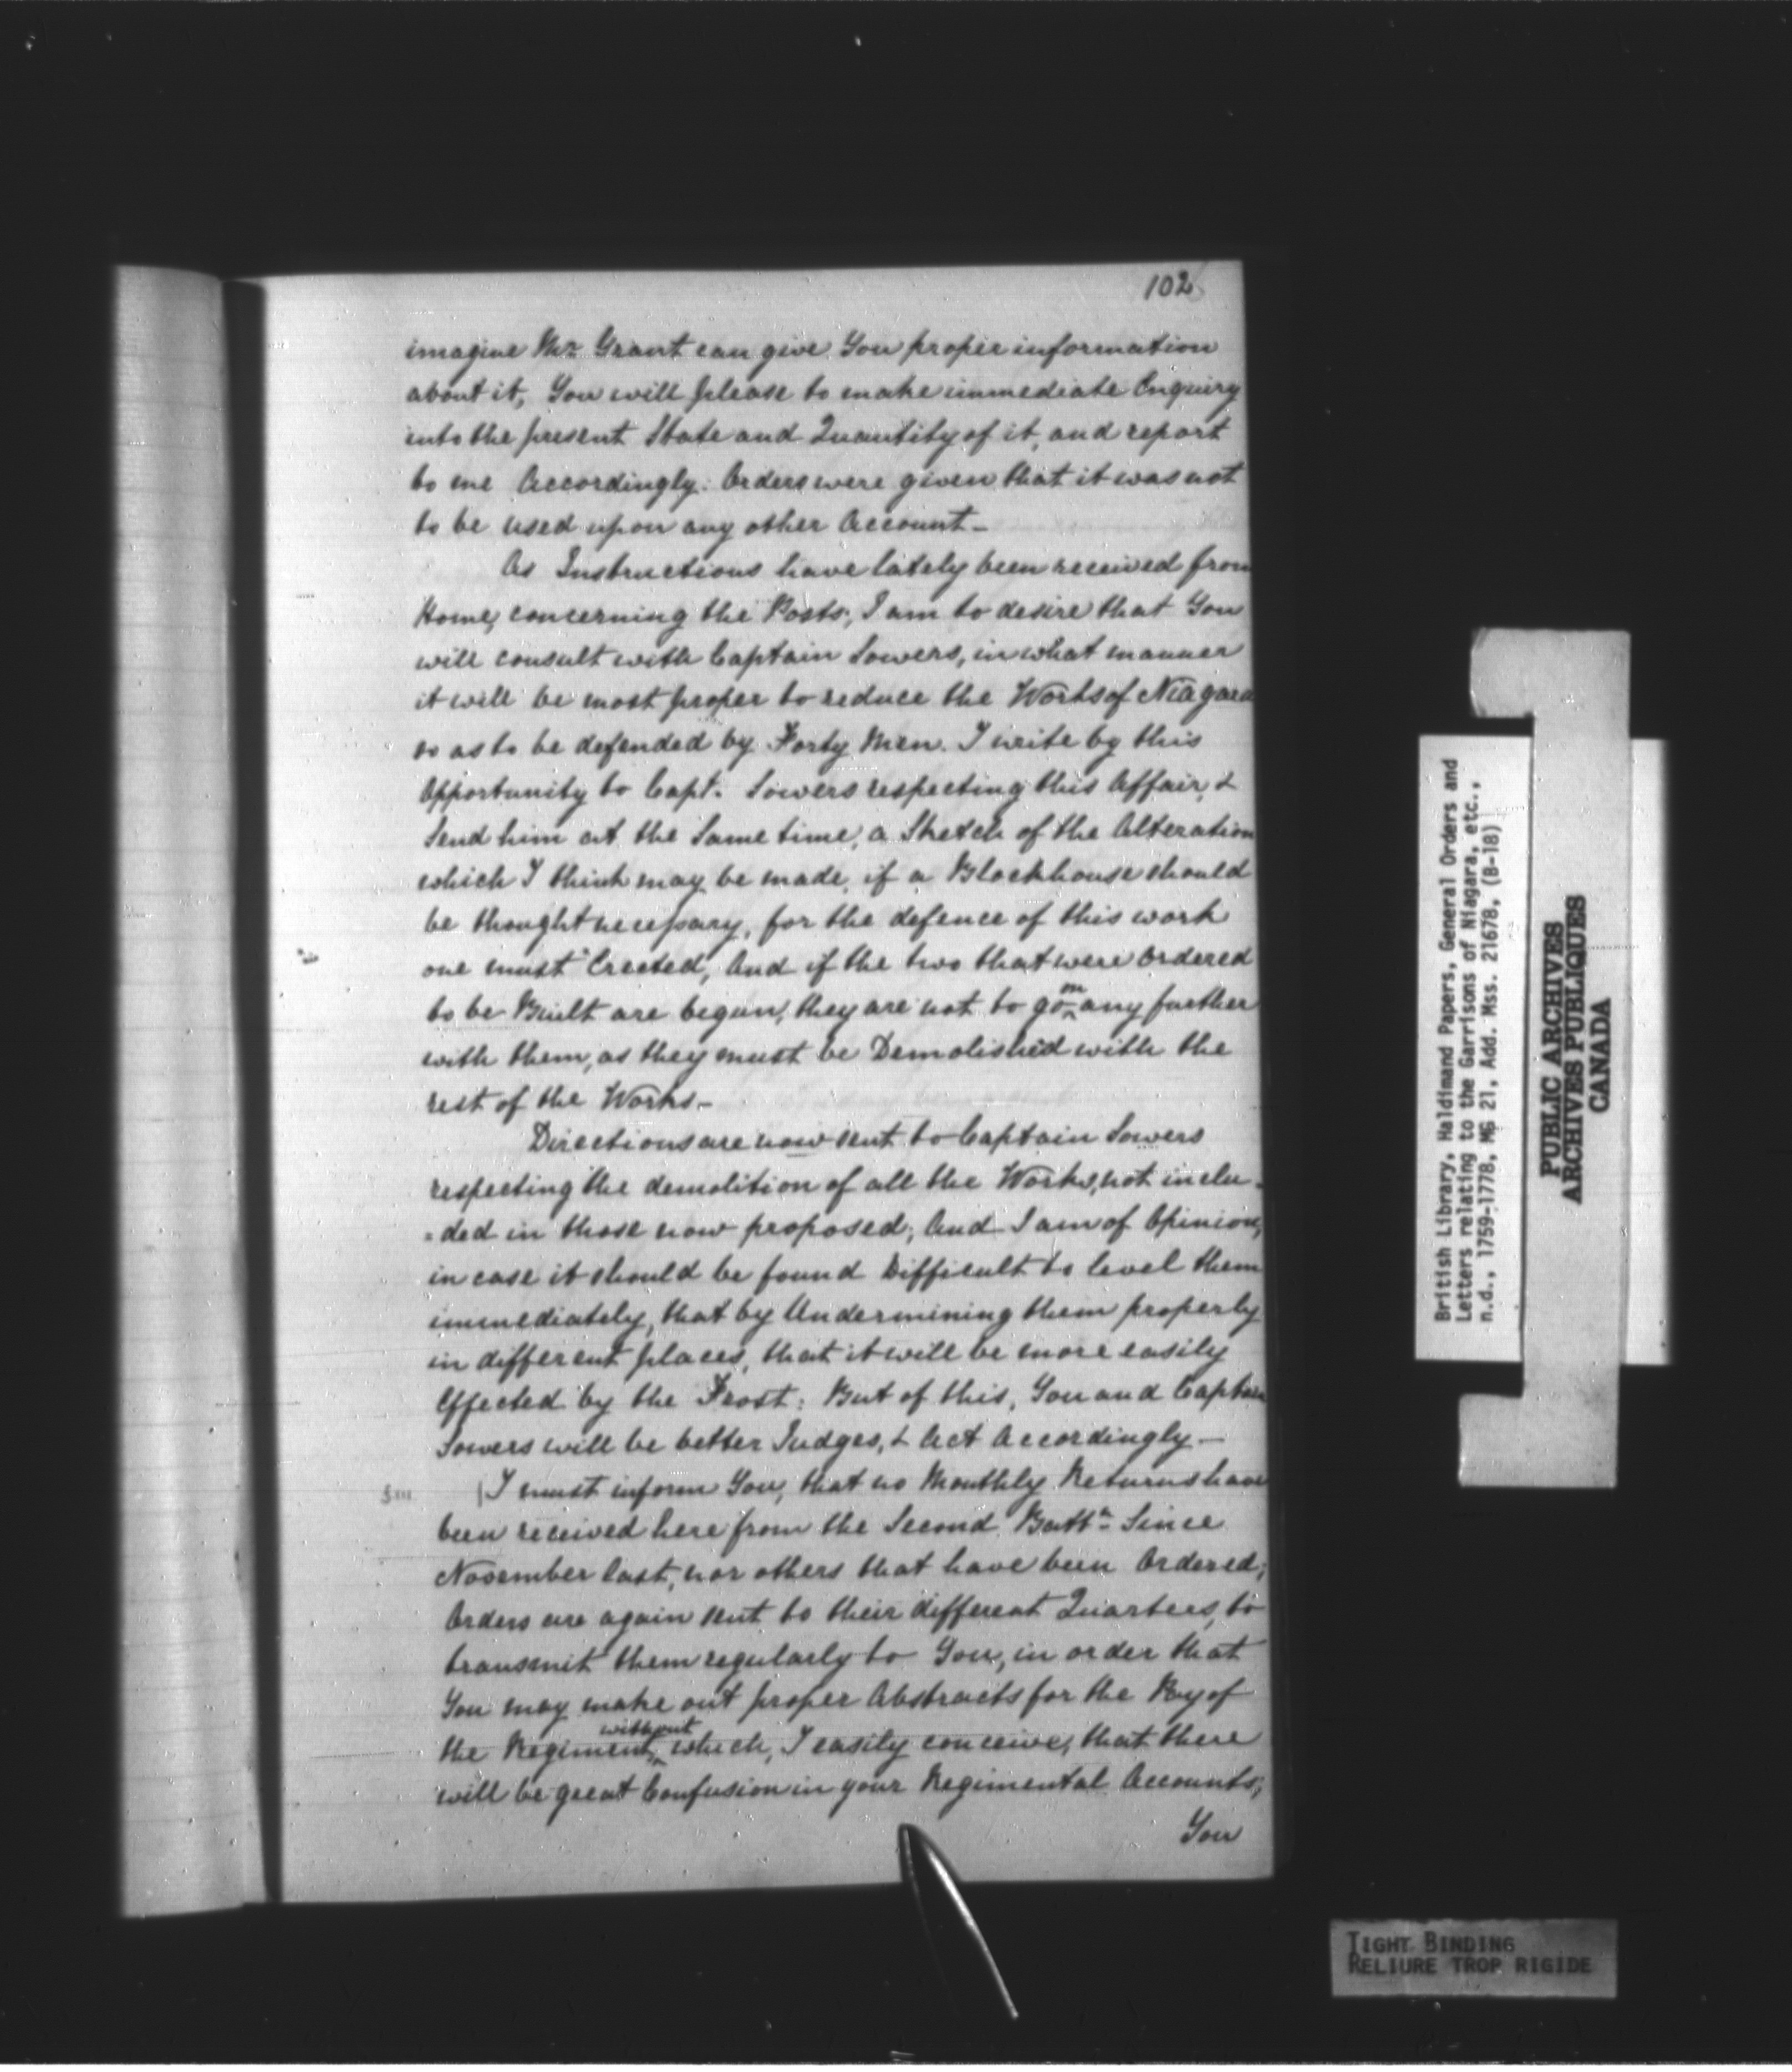 102
imagine Mr Grant can give You proper information
about it, You will please to make immediate Enquiry
into the present State and Quantity of it, and report
to me Accordingly: Orders were given that it was not
to be used upon any other Account_
As Instructions have lately been received from
Home, concerning the Posts, I am to desire that You
will consult with Captain Sowers, in what manner
it will be most proper to reduce the Works of Niagara
so as to be defended by Forty Men. I write by this
Opportunity to Capt. Sowers respecting this Affair, &
Send him at the Same time, a Sketch of the Alteration
which I think may be made, if a Blockhouse should
be thought necessary, for the defence of this work
one must Erected, And if the two that were Ordered
to be Built are begun, they are not to go on any further
with them, as they must be Demolished with the
rest of the Works_
Directions are now sent to Captain Sowers
respecting the demolition of all the Works, not inclu-
=ded in those now proposed; And I am of Opinion,
in case it should be found Difficult to level them
immediately, that by Undermining them properly
in different places, that it will be more easily
Effected by the Frost: But of this, You and Captain
Sowers will be better Judges, & Act Accordingly_
I must inform You, that no Monthly Returns have
been received here from the Second Battn Since
November last, nor others that have been Ordered;
Orders are again sent to their different Quarters, to
transmit them regularly to You, in order that
You may make out proper Abstracts for the Pay of
the Regiment, without which, I easily conceive, that there
will be great Confusion in your Regimental Accounts;
You
British Library, Haldimand Papers, General Orders and
Letters relating to the Garrisons of Niagara, etc.,
n.d., 1759-1778, MG 21, Add. Mss. 21678, (B-18)
PUBLIC ARCHIVES
ARCHIVES PUBLIQUES
CANADA
TIGHT BINDING
RELIURE TROP RIGIDE